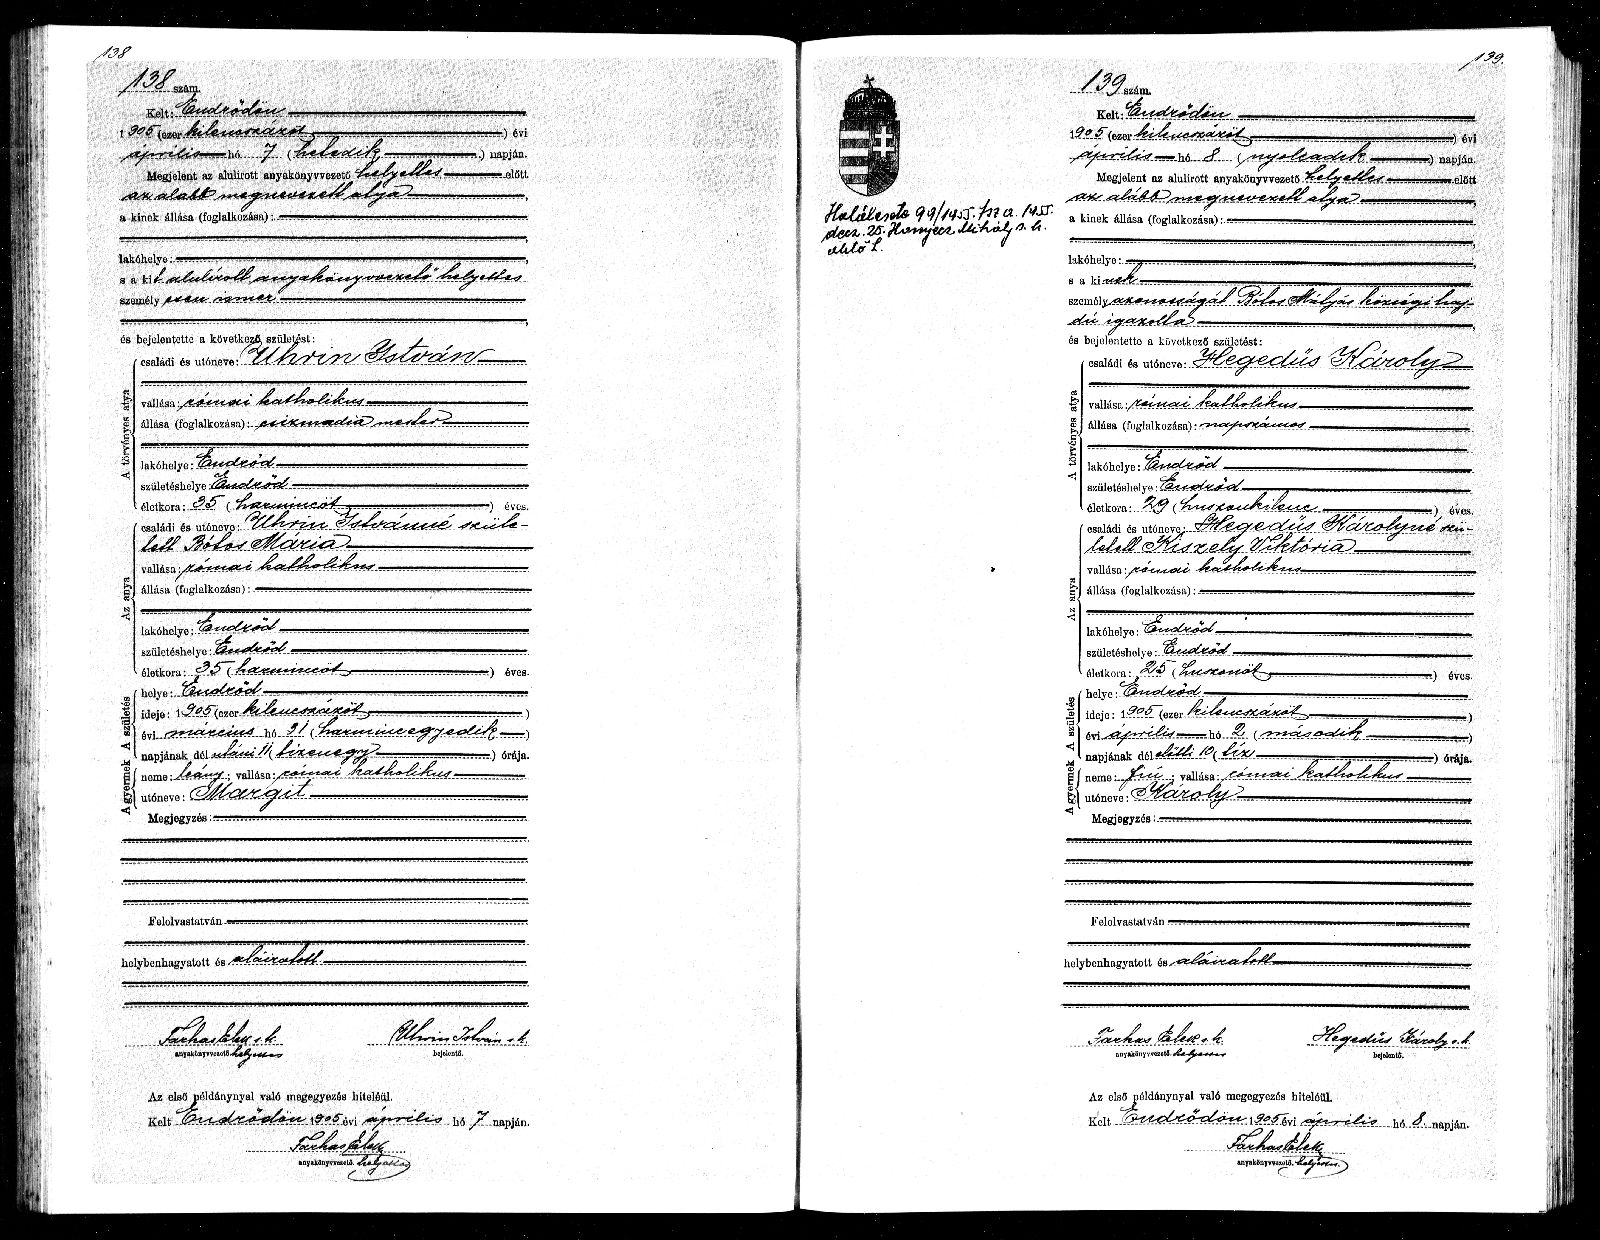 138
138 szám.
Kelt: Endrődön
1905 (ezer kilenczázöt) évi
április hó 7 (hetedik) napján.
Megjelent az alulirott anyakönyvvezető helyettes előtt
az alább megnevezett atya,
a kinek állása (foglalkozása):
lakóhelye:
s a kit alulírott anyakönyvvezető helyettes
személyesen ismer
és bejelentette a következő születést:
A törvényes atya
családi és utóneve: Uhrin István
vallása: római katholikus
állása (foglalkozása): csizmadia mester
lakóhelye: Endrőd
születéshelye: Endrőd
életkora: 35 (harmincöt) éves.
Az anya
családi és utóneve: Uhrin Istvánné szüle-
tett Bótos Mária
vallása: római katholikus
állása (foglalkozása):
lakóhelye: Endrőd
születéshelye: Endrőd
életkora: 35 (harmincöt) éves.
A gyermek A születés
helye: Endrőd
ideje: 1905 (ezer kilenczázöt)
évi március hó 31 (harmincegyedik)
napjának dél utáni 11 (tizenegy) órája.
neme: leány; vallása: római katholikus
utóneve: Margit
Megjegyzés:
Felolvastatván
helybenhagyatott és aláiratott
Farkas Elek s. k. Uhrin István s. k.
anyakönyvvezető helyettes bejelentő.
Az első példánynyal való megegyezés hiteléül.
Kelt Endrődön 1905 évi április hó 7 napján.
Farkas Elek
anyakönyvvezető. helyettes
139.
Haláleset 99/1955.
decz. 25. Mihály s. k.
139 szám.
Kelt: Endrődön
1905 (ezer kilenczázöt) évi
április hó 8 (nyolcadik) napján.
Megjelent az alulirott anyakönyvvezető helyettes előtt
az alább megnevezett atya
a kinek állása (foglalkozása):
lakóhelye:
s a kinek
személyazonosságát Bótos Mátyás községi haj-
dú igazolta
és bejelentette a következő születést:
A törvényes atya
családi és utóneve: Hegedüs Károly
vallása: római katholikus
állása (foglalkozása): napszámos
lakóhelye: Endrőd
születéshelye: Endrőd
életkora: 29 (huszonkilenc) éves.
Az anya
családi és utóneve: Hegedüs Károlyné szü-
letett Kiszely Viktória
vallása: római katholikus
állása (foglalkozása):
lakóhelye: Endrőd
születéshelye: Endrőd
életkora: 25 (huszonöt) éves.
A gyermek A születés
helye: Endrőd
ideje: 1905 (ezer kilenczázöt)
évi április hó 2 (második)
napjának dél előtti 10 (tíz) órája.
neme: fiú; vallása: római katholikus
utóneve: Károly
Megjegyzés:
Felolvastatván
helybenhagyatott és aláiratott
Farkas Elek s. k. Hegedüs Károly s. k.
anyakönyvvezető helyettes bejelentő.
Az első példánynyal való megegyezés hiteléül.
Kelt Endrődön 1905 évi április hó 8. napján.
Farkas Elek
anyakönyvvezető. helyettes.